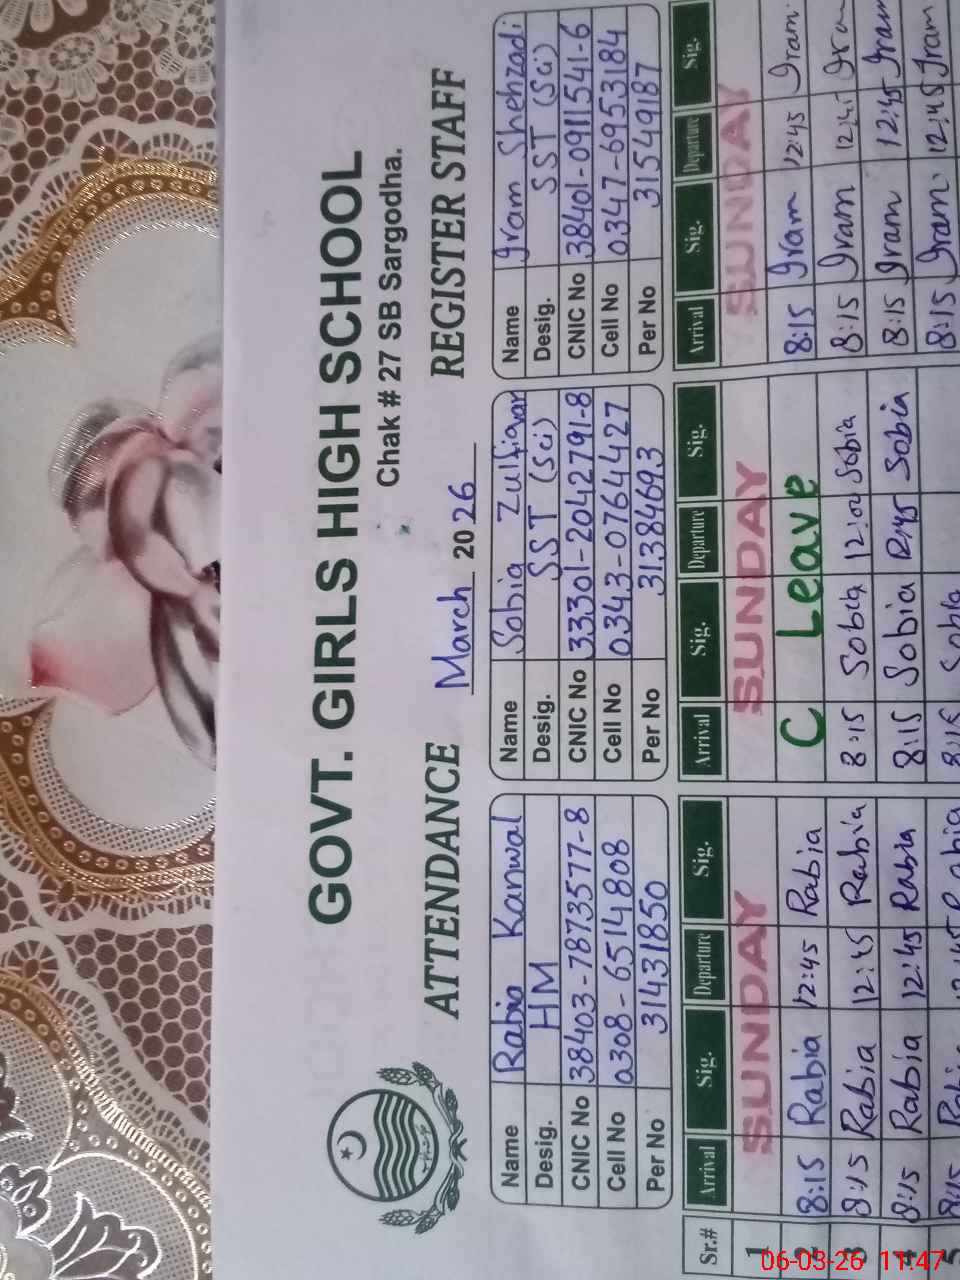 GOVT. GIRLS HIGH SCHOOL
Chak # 27 SB Sargodha.
ATTENDANCE March 2026 REGISTER STAFF
Name Rabia Kanwal Name Sobia Zulfiqar Name Iram Shehzadi
Desig. HM Desig. SST (Sci) Desig. SST (Sci)
CNIC No 38403-7873577-8 CNIC No 33301-2042791-8 CNIC No 38401-0911541-6
Cell No 0308-6514808 Cell No 0343-0764427 Cell No 0347-6953184
Per No 31431850 Per No 31384693 Per No 31549187
Sr.# Arrival Sig. Departure Sig. Arrival Sig. Departure Sig. Arrival Sig. Departure Sig.
1 SUNDAY SUNDAY SUNDAY
2 8:15 Rabia 12:45 Rabia C Leave 8:15 Iram 12:45 Iram
3 8:15 Rabia 12:45 Rabia 8:15 Sobia 12:00 Sobia 8:15 Iram 12:45 Iram
4 8:15 Rabia 12:45 Rabia 8:15 Sobia Sobia 8:15 Iram 12:45 Iram
5 8:15 Rabia 12:45 Rabia 8:15 Sobia 8:15 Iram 12:45 Iram
06-03-26 11:47